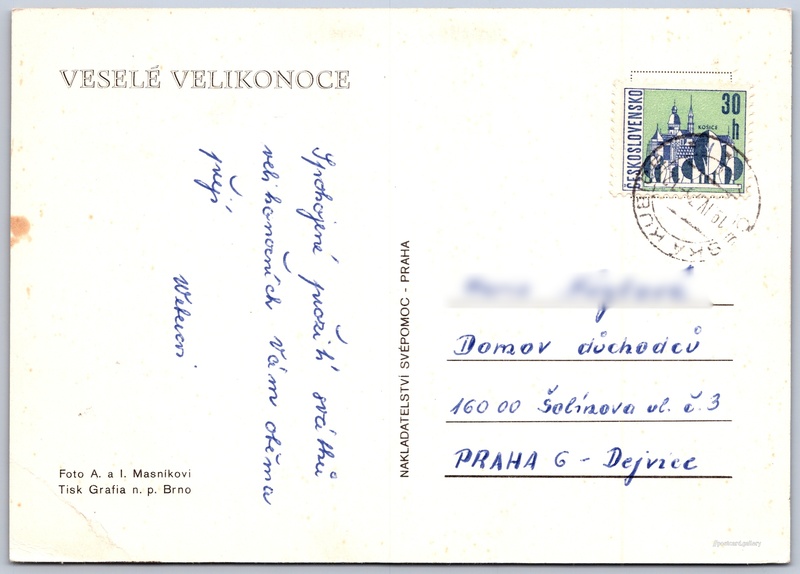 VESELÉ VELIKONOCE
Spokojené prožití svátků
velikonočních Vám oběma
přejí
Foto A. a I. Masníkovi
Tisk Grafia n. p. Brno
NAKLADATELSTVÍ SVÉPOMOC - PRAHA
ČESKOSLOVENSKO
30
h
KOŠICE
ČESKÁ KUBICE
Domov důchodců
160 00 Šolínova ul. č. 3
PRAHA 6 - Dejvice